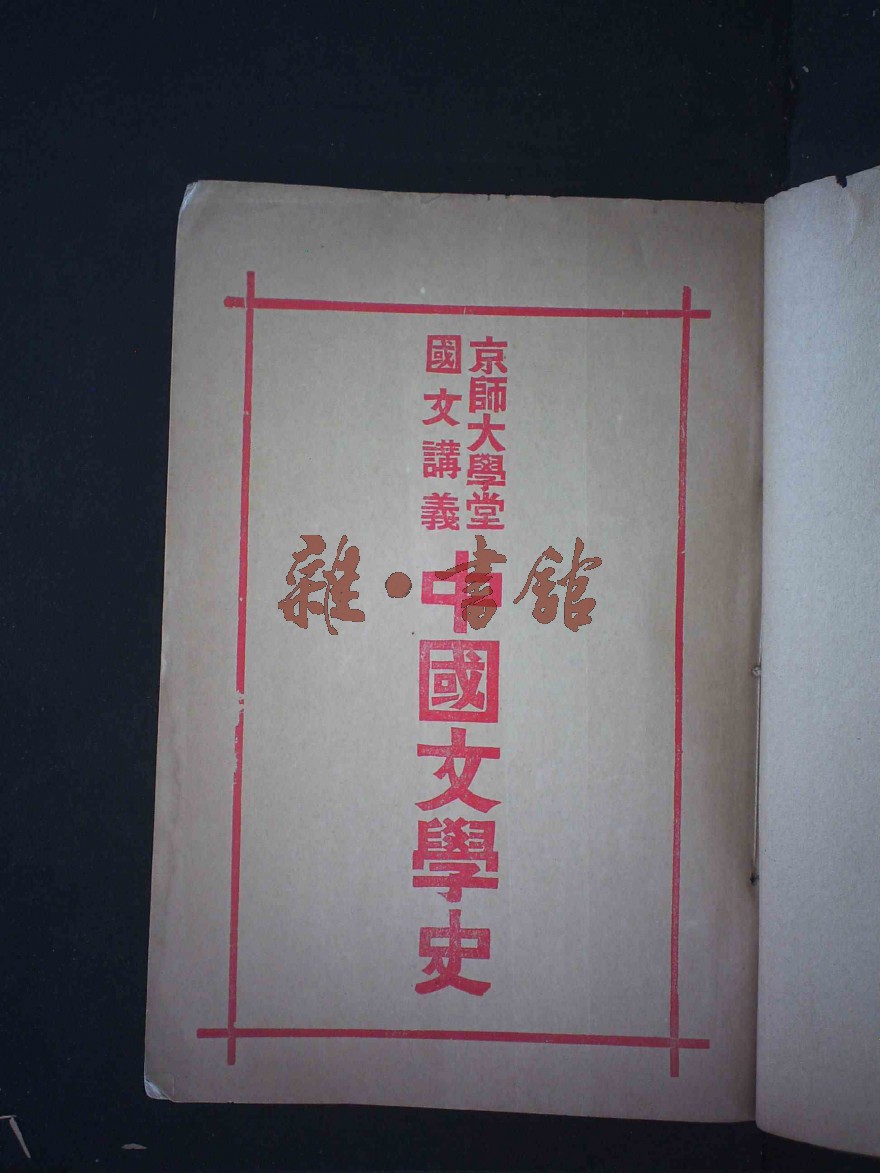 京師大學堂
國文講義
中國文學史
雜·書館